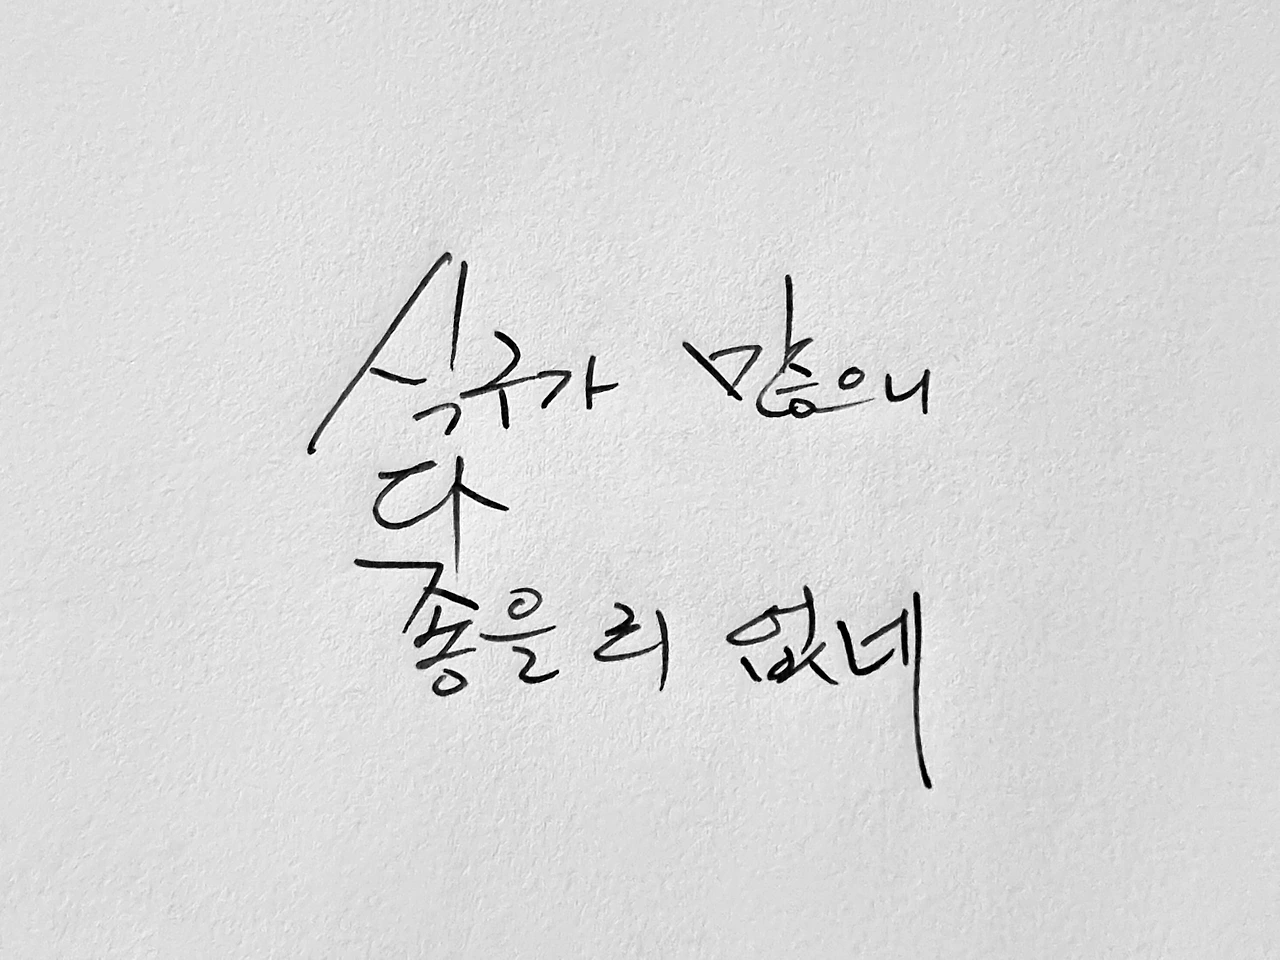 식구가 많으니
다
좋을 리 없네